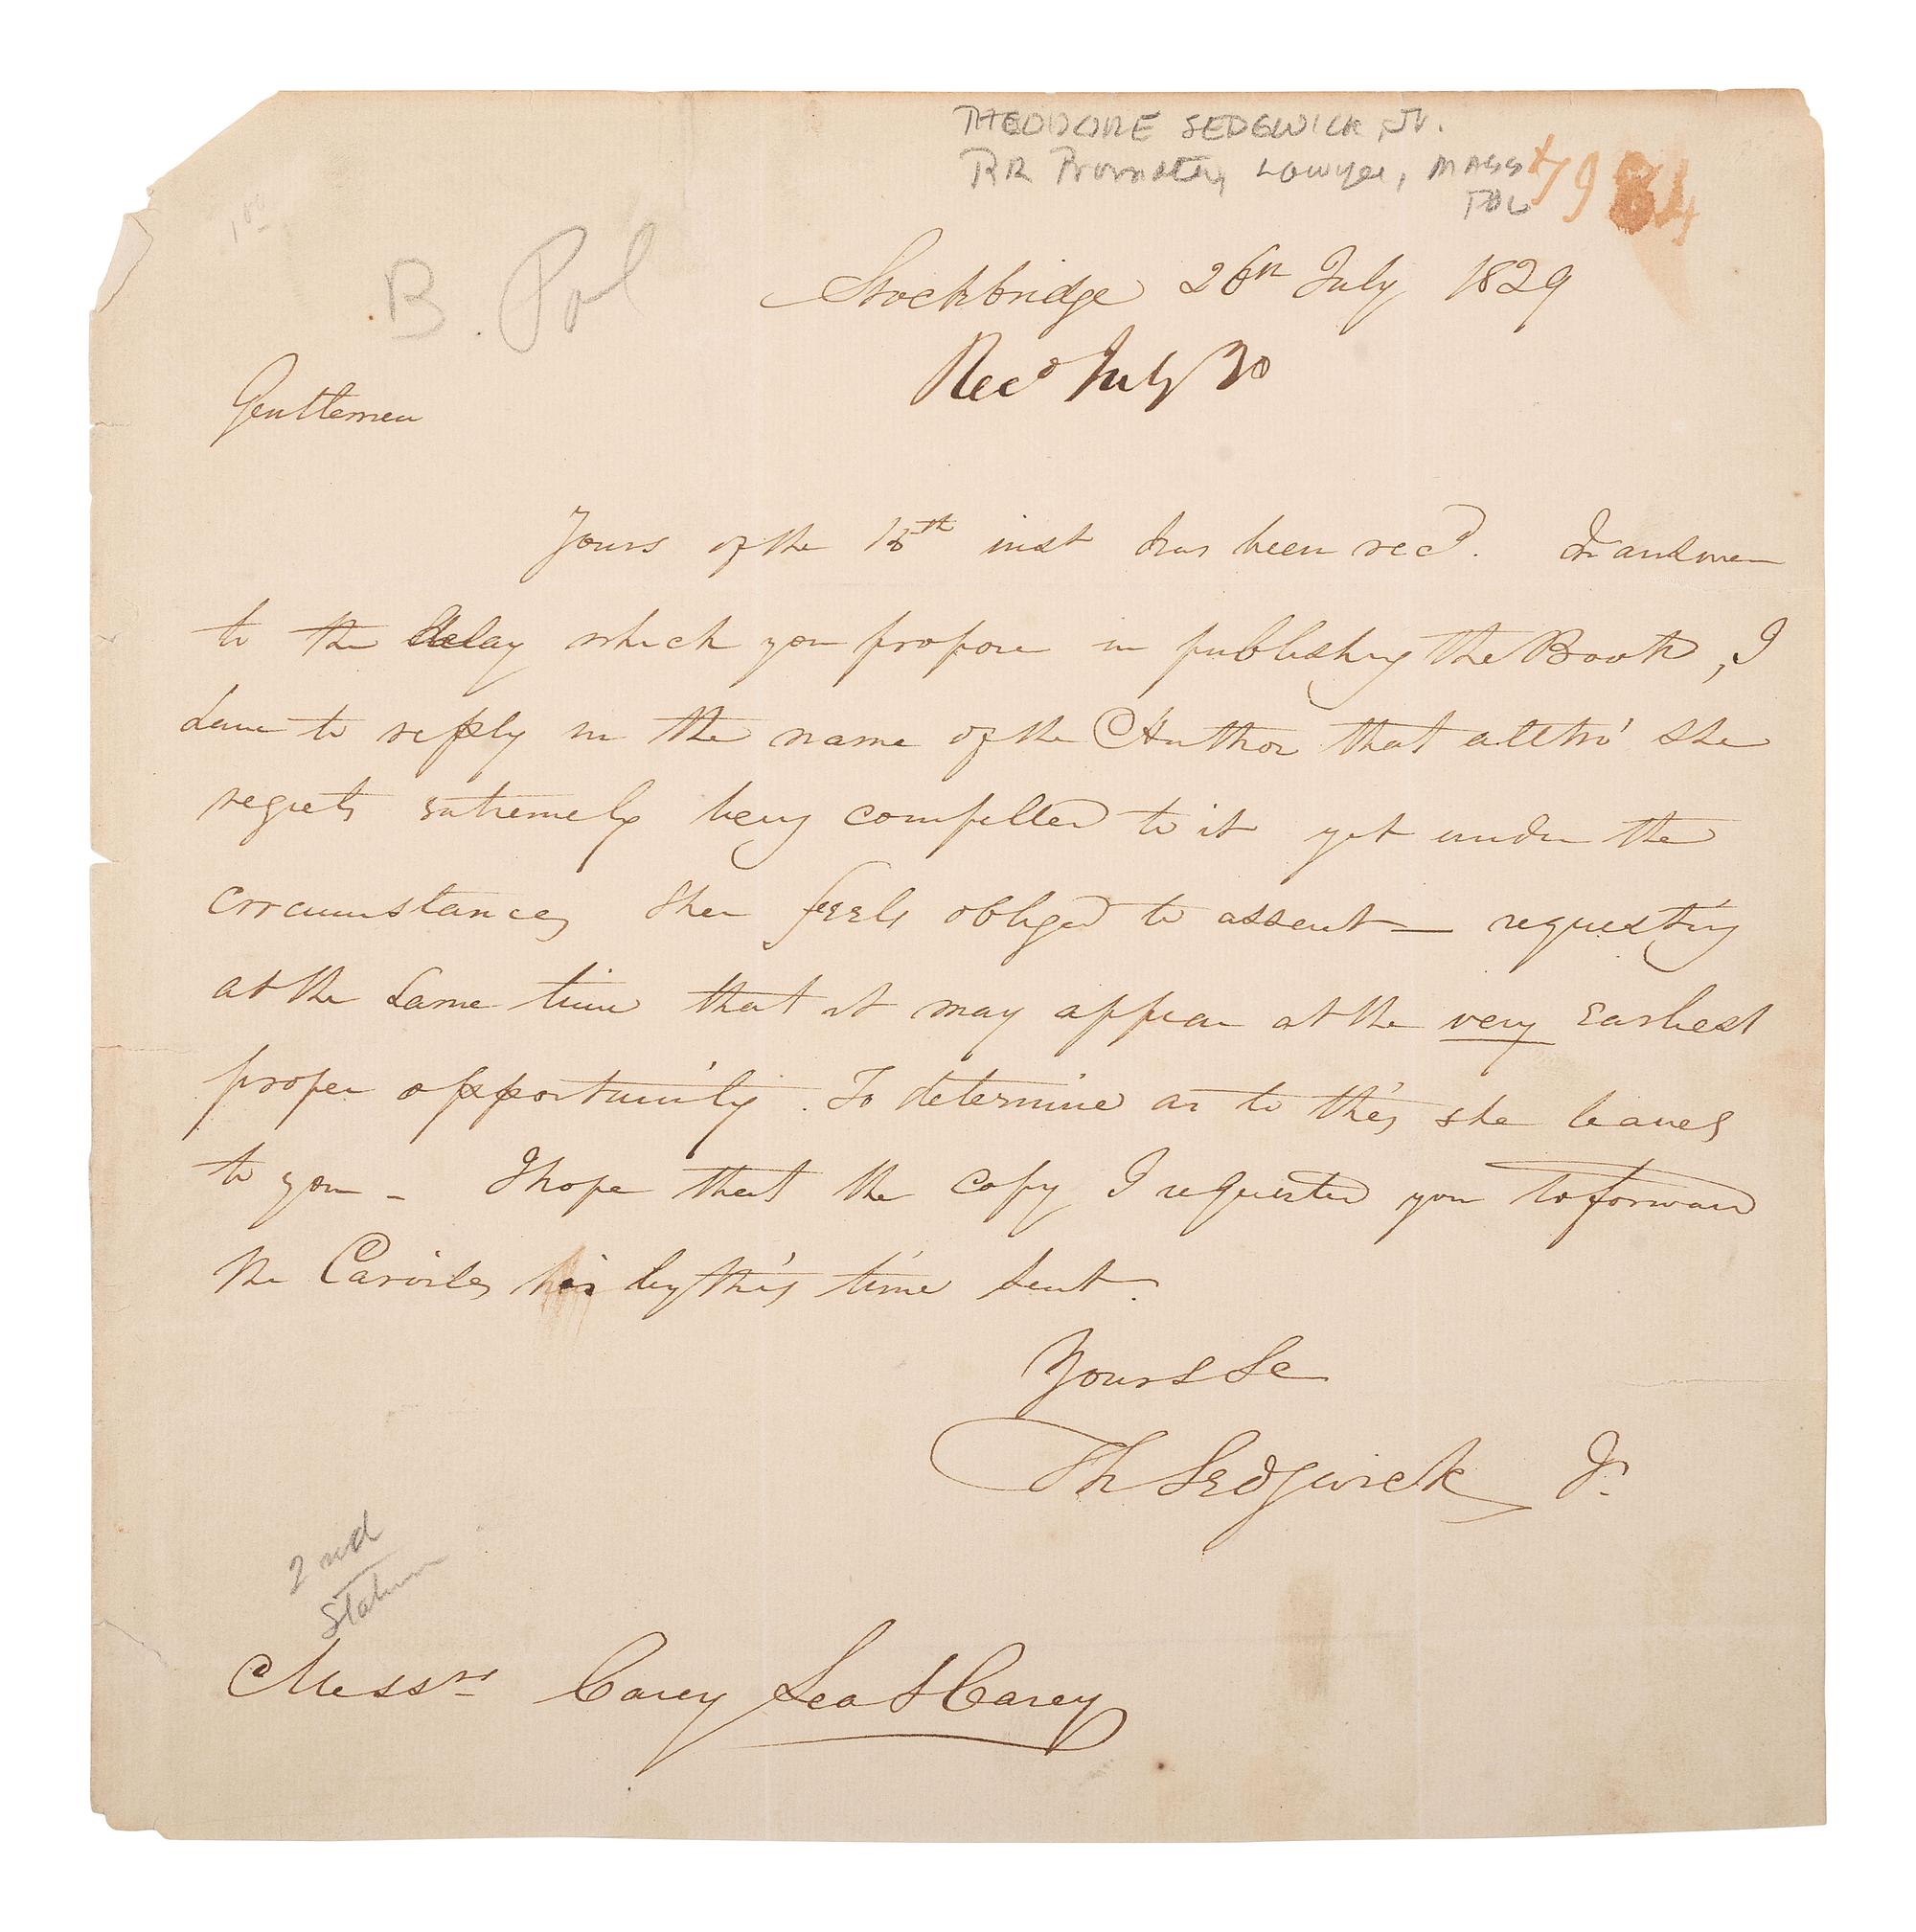 THEODORE SEDGWICK, Jr.
RR Promoter, Lawyer, MASS
POL
B. Pol
Stockbridge 26th July 1829
Recd July 30
Gentlemen
Yours of the 18th inst has been recd. In answer
to the delay which you propose in publishing the Book, I
have to reply in the name of the Author that altho' she
regrets extremely being compelled to it yet under the
circumstances she feels obliged to assent — requesting
at the same time that it may appear at the very earliest
proper opportunity. To determine as to this she leaves
to you – I hope that the copy I requested you to forward
the Carvills has by this time sent.
Yours &c
Th Sedgwick Jr.
2nd
Messrs Carey Lea & Carey